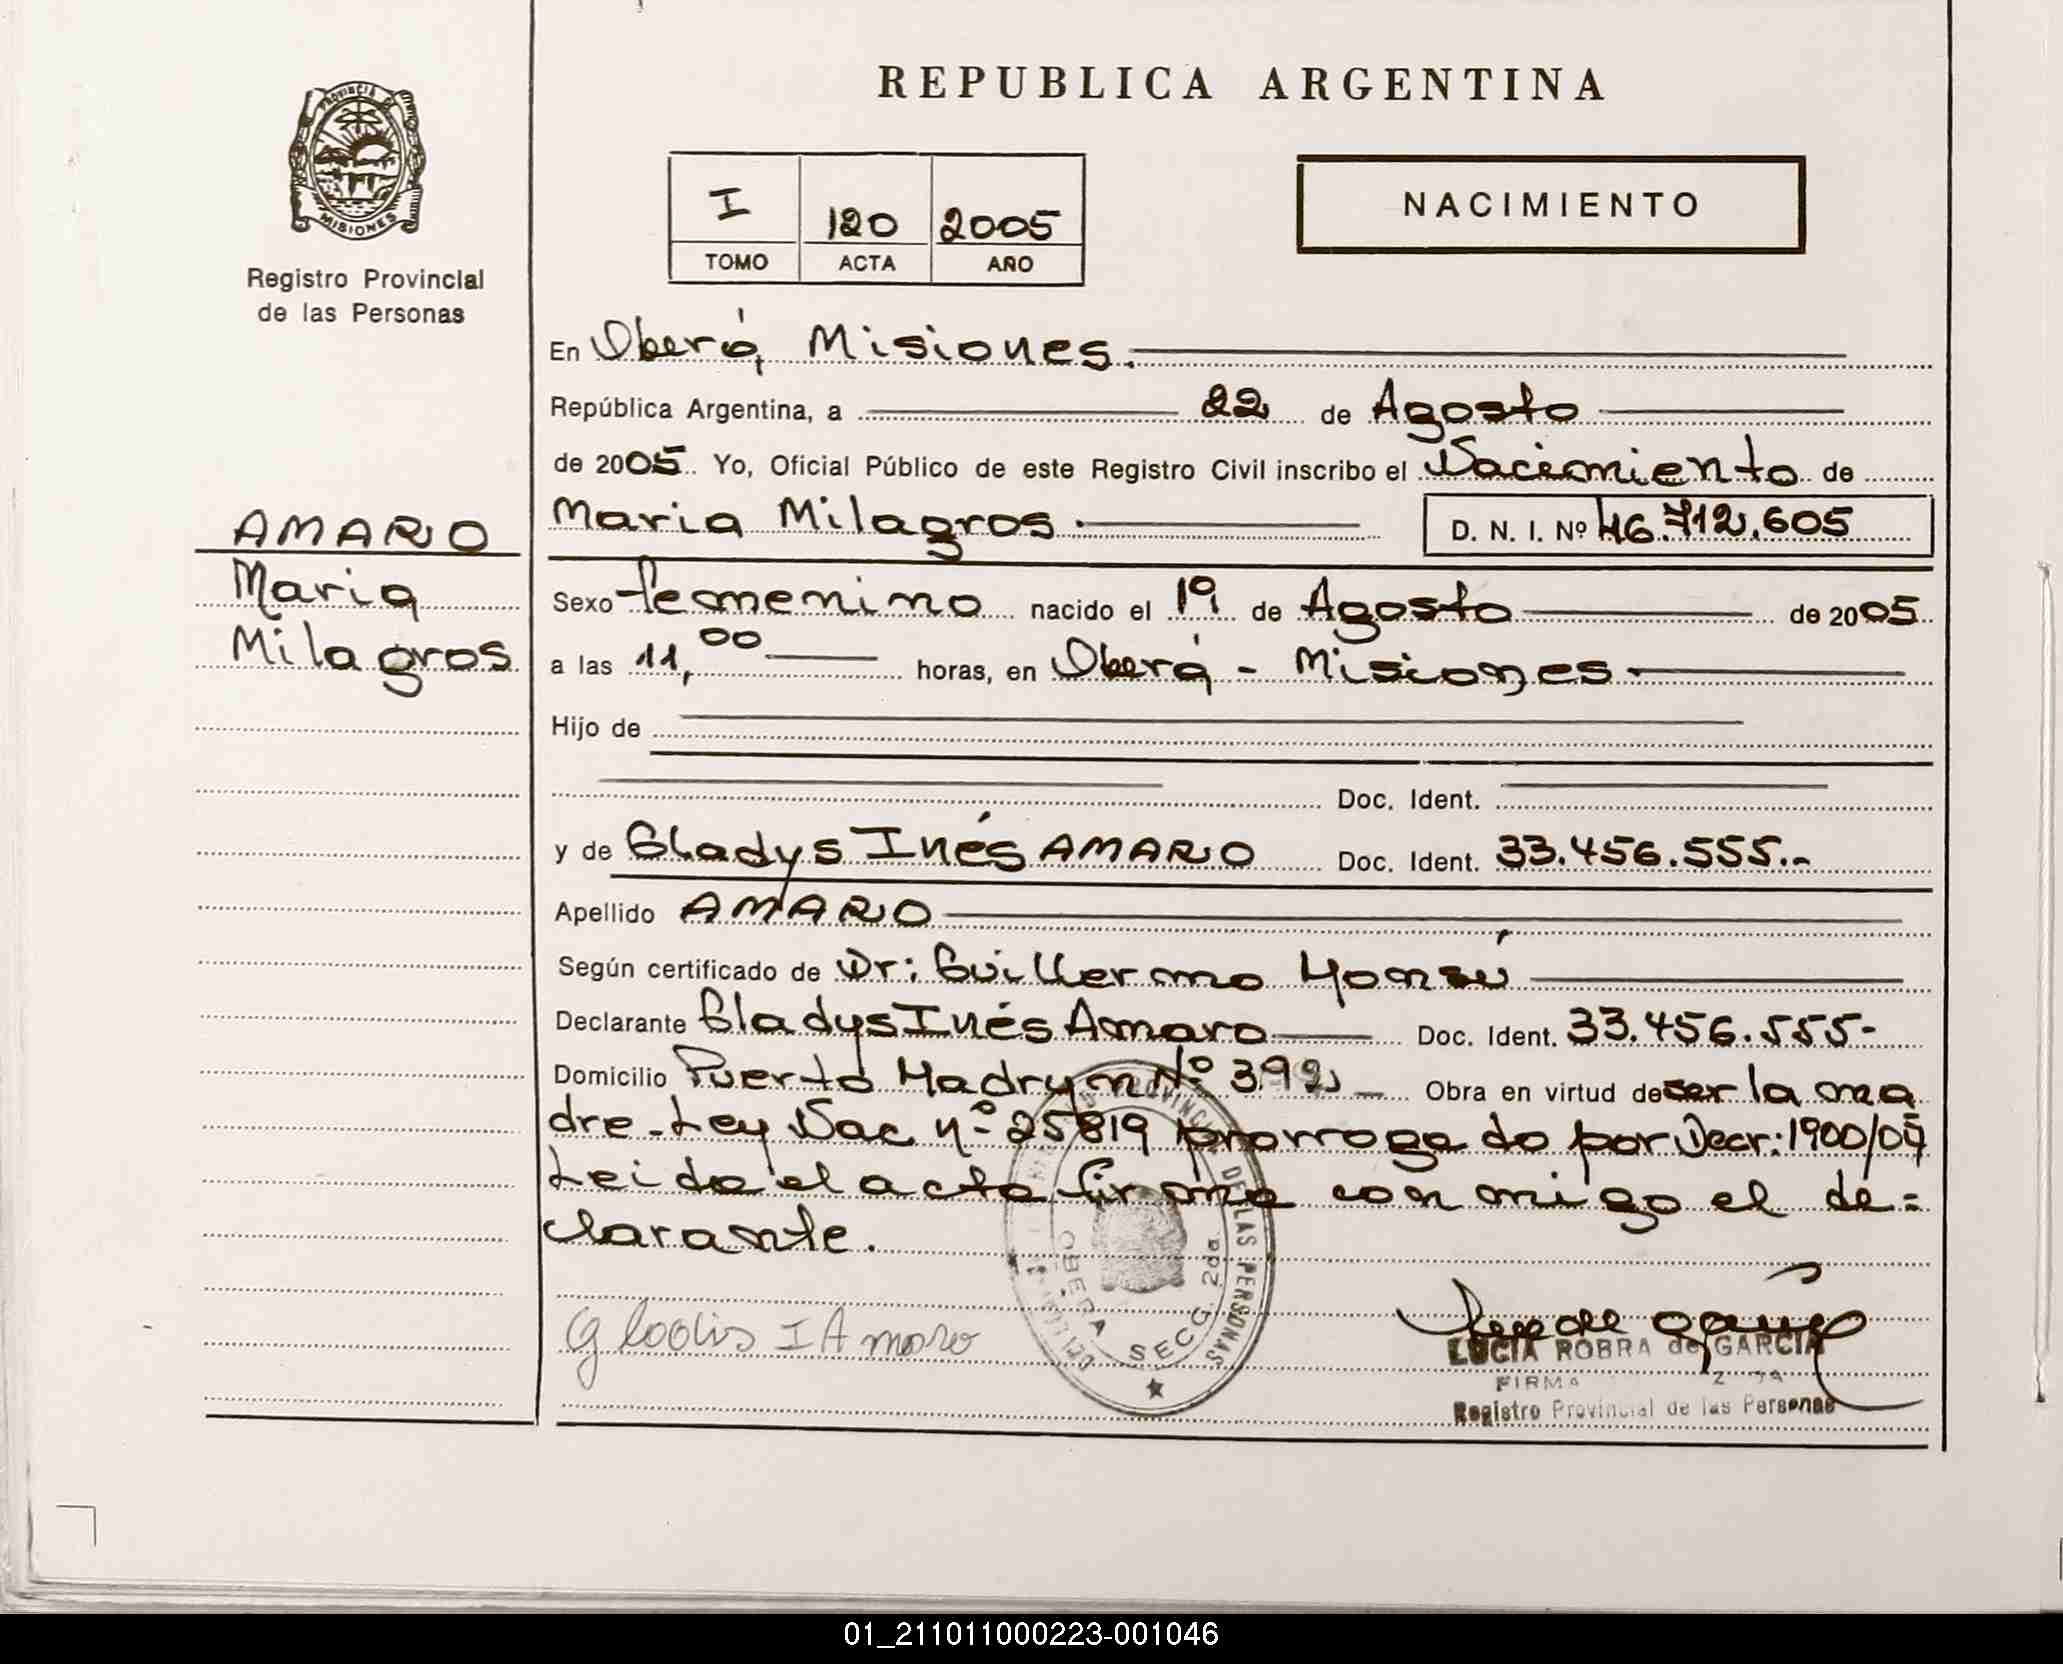 REPUBLICA ARGENTINA
PROVINCIA DE
MISIONES
Registro Provincial
de las Personas
I 120 2005
TOMO ACTA AÑO
NACIMIENTO
AMARO
Maria
Milagros
En Oberá, Misiones.
República Argentina, a 22 de Agosto
de 2005 Yo, Oficial Público de este Registro Civil inscribo el Nacimiento de
Maria Milagros. D. N. I. Nº 46.712.605
Sexo femenino nacido el 19 de Agosto de 2005
a las 11,00 horas, en Oberá - Misiones.
Hijo de
Doc. Ident.
y de Gladys Inés AMARO Doc. Ident. 33.456.555.-
Apellido AMARO
Según certificado de Dr: Guillermo
Declarante Gladys Inés Amaro Doc. Ident. 33.456.555-
Domicilio Puerto Madryn Nº 392 Obra en virtud de ser la ma
dre - Ley Nac. nº 25819 prorrogado por Decr: 1900/04
Leida el acta firma con migo el de=
clarante.
Gladis I Amaro
PROVINCIAL DE LAS PERSONAS
OBERA SECC. 2da.
LUCIA ROBRA de GARCIA
FIRMA
Registro Provincial de las Personas
01_211011000223-001046